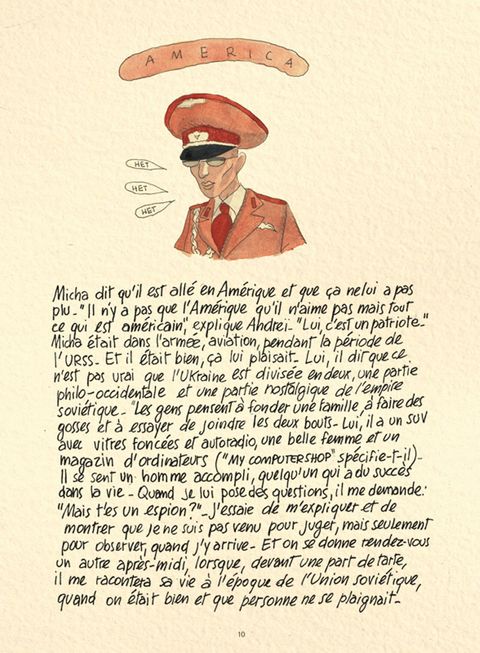 AMERICA
HET
HET
HET
Micha dit qu'il est allé en Amérique et que ça ne lui a pas
plu_ "Il n'y a pas que l'Amérique qu'il n'aime pas mais tout
ce qui est américain", explique Andreï_ "Lui, c'est un patriote_"
Micha était dans l'armée, aviation, pendant la période de
l'URSS_ Et il était bien, ça lui plaisait_ Lui, il dit que ce
n'est pas vrai que l'Ukraine est divisée en deux, une partie
philo-occidentale et une partie nostalgique de l'empire
soviétique_ "Les gens pensent à fonder une famille, à faire des
gosses et à essayer de joindre les deux bouts_ Lui, il a un SUV
avec vitres foncées et autoradio, une belle femme et un
magazin d'ordinateurs ("MY COMPUTERSHOP" spécifie-t-il)_
Il se sent un homme accompli, quelqu'un qui a du succès
dans la vie_ Quand je lui pose des questions, il me demande:
"Mais t'es un espion?"_ J'essaie de m'expliquer et de
montrer que je ne suis pas venu pour juger, mais seulement
pour observer, quand j'y arrive_ Et on se donne rendez-vous
un autre après-midi, lorsque, devant une part de tarte,
il me racontera sa vie à l'époque de l'Union soviétique,
quand on était bien et que personne ne se plaignait_
10